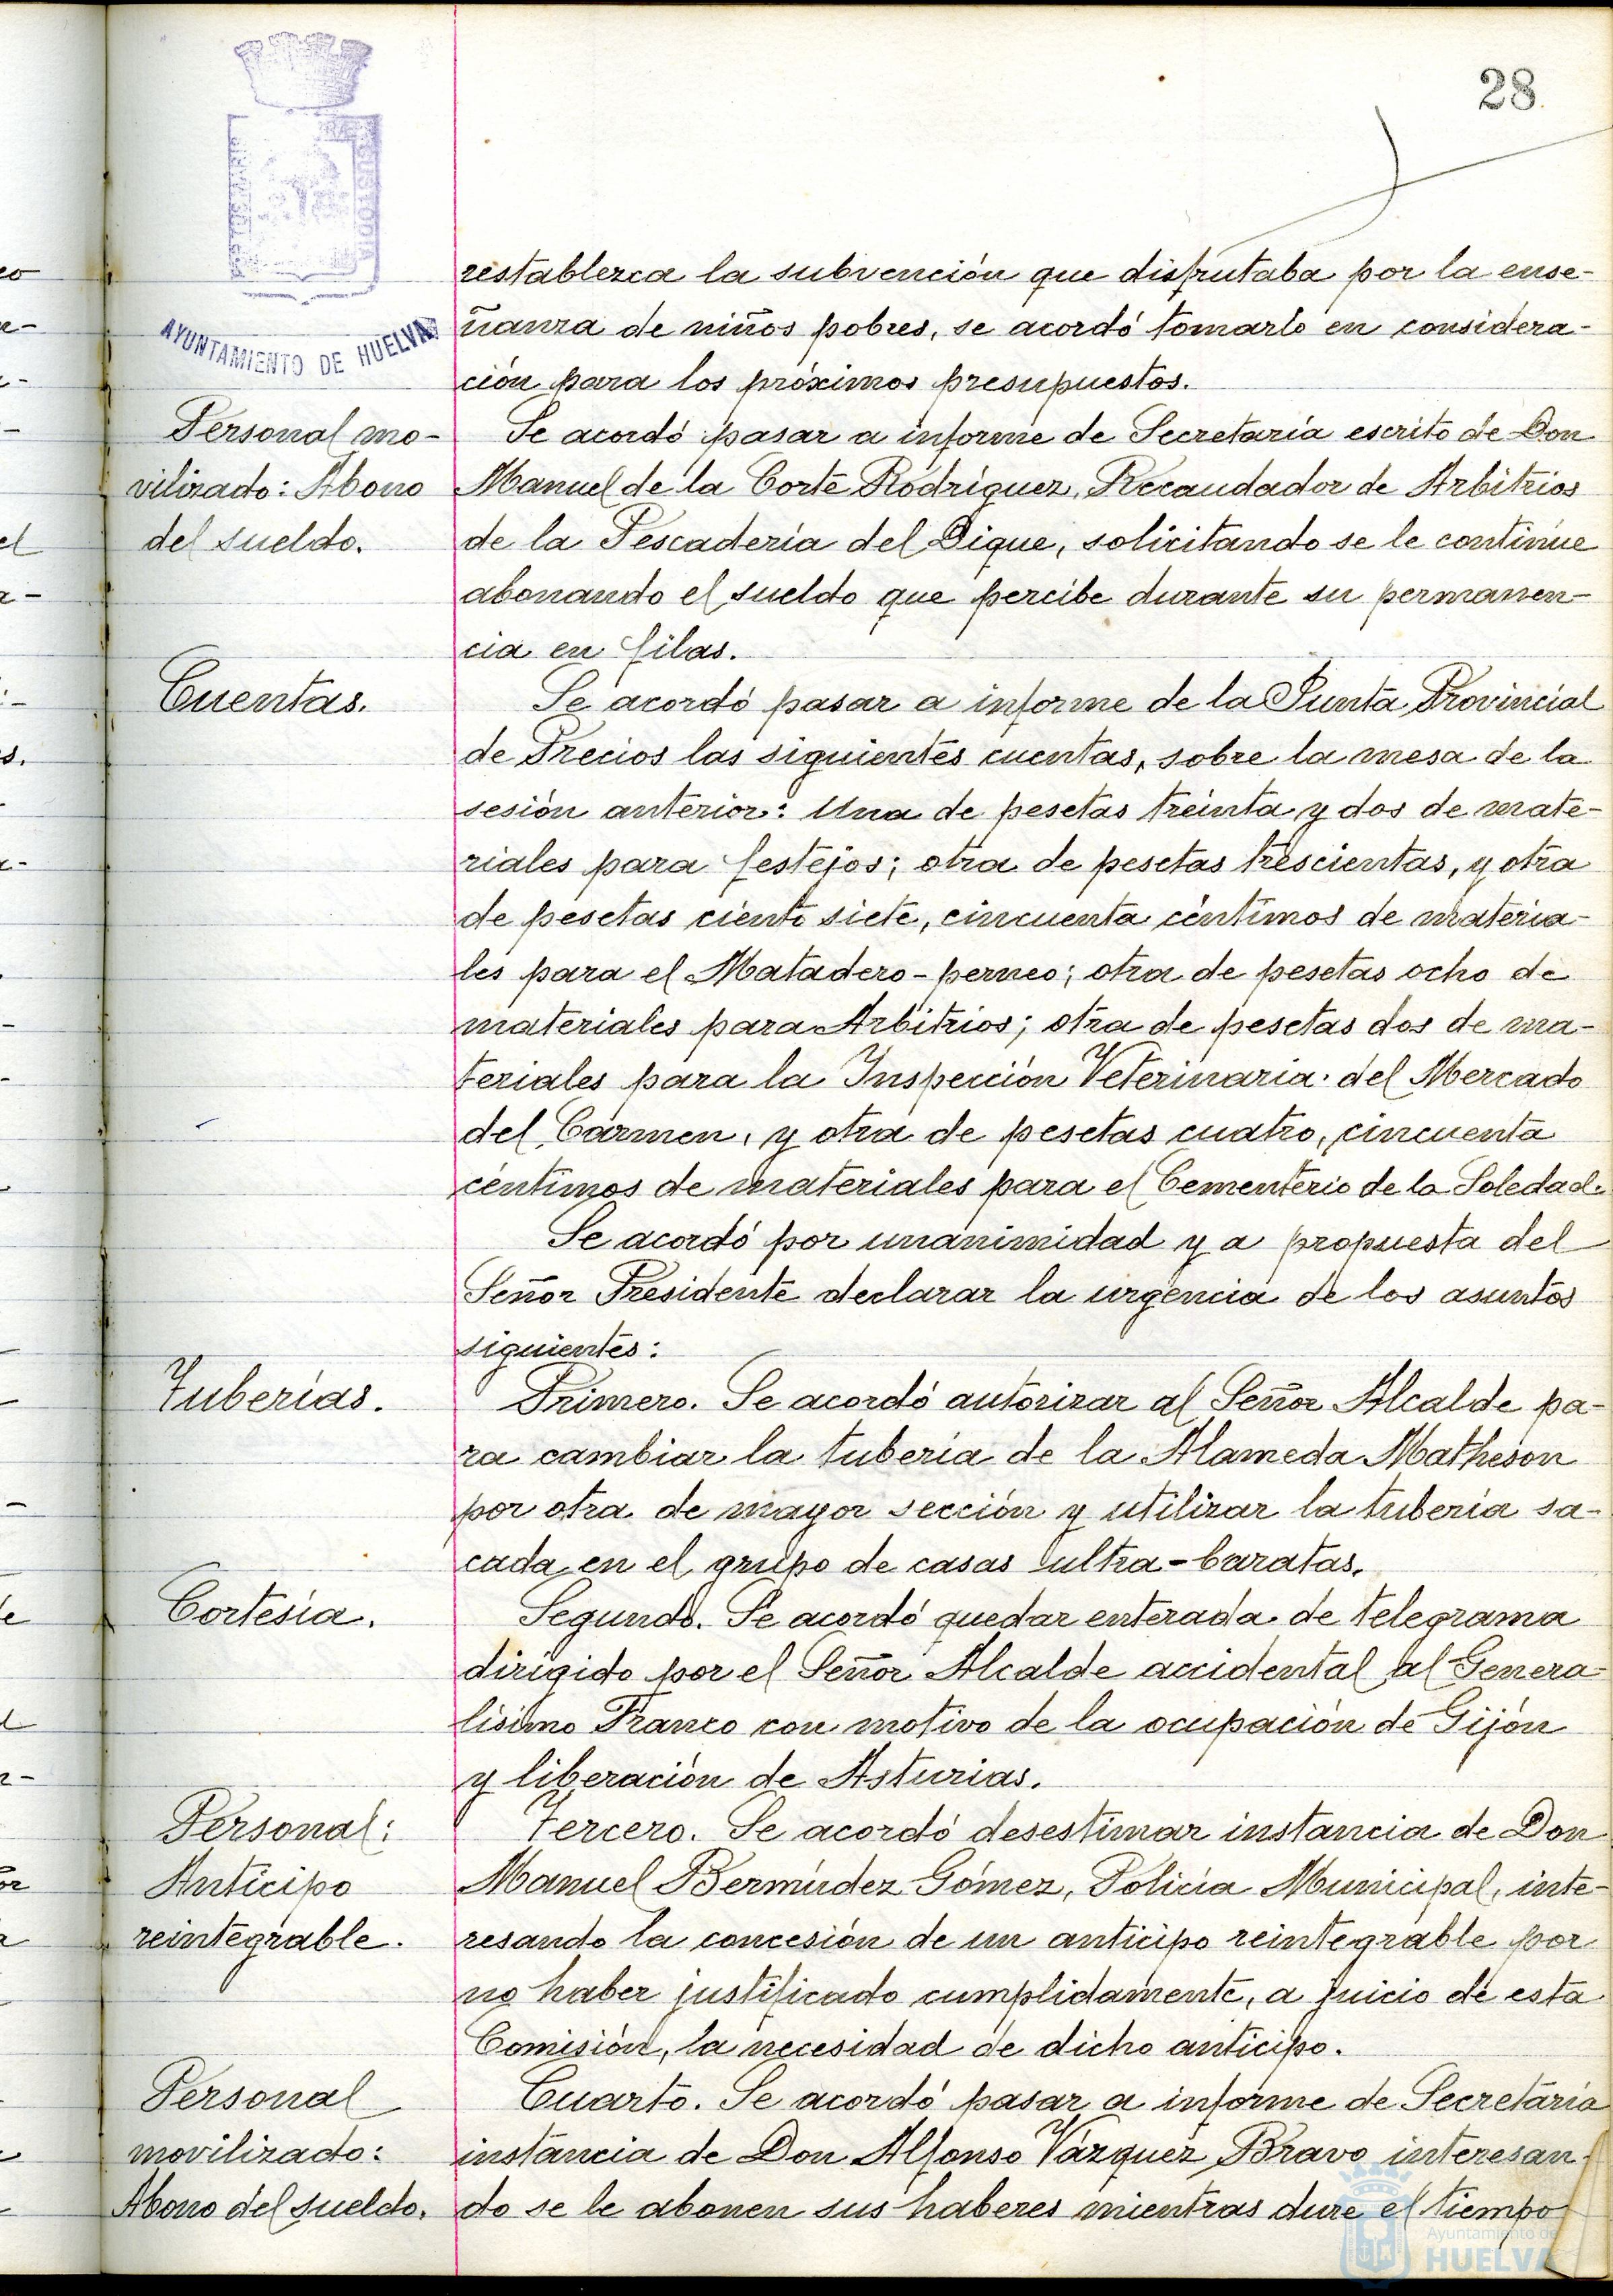 28
AYUNTAMIENTO DE HUELVA
restablezca la subvención que disfrutaba por la ense-
ñanza de niños pobres, se acordó tomarlo en considera-
ción para los próximos presupuestos.
Personal mo-
vilizado: Abono
del sueldo.
Se acordó pasar a informe de Secretaría escrito de Don
Manuel de la Corte Rodríguez, Recaudador de Arbitrios
de la Pescadería del Dique, solicitando se le continúe
abonando el sueldo que percibe durante su permanen-
cia en filas.
Cuentas.
Se acordó pasar a informe de la Junta Provincial
de Precios las siguientes cuentas, sobre la mesa de la
sesión anterior: Una de pesetas treinta y dos de mate-
riales para festejos; otra de pesetas trescientas, y otra
de pesetas ciento siete, cincuenta céntimos de materia-
les para el Matadero-perneo; otra de pesetas ocho de
materiales para Arbitrios; otra de pesetas dos de ma-
teriales para la Inspección Veterinaria del Mercado
del Carmen, y otra de pesetas cuatro, cincuenta
céntimos de materiales para el Cementerio de la Soledad.
Se acordó por unanimidad y a propuesta del
Señor Presidente declarar la urgencia de los asuntos
siguientes:
Tuberías.
Primero. Se acordó autorizar al Señor Alcalde pa-
ra cambiar la tubería de la Alameda Matheson
por otra de mayor sección y utilizar la tubería sa-
cada en el grupo de casas ultra-baratas.
Cortesía.
Segundo. Se acordó quedar enterada de telegrama
dirigido por el Señor Alcalde accidental al Genera-
lísimo Franco con motivo de la ocupación de Gijón
y liberación de Asturias.
Personal:
Anticipo
reintegrable.
Tercero. Se acordó desestimar instancia de Don
Manuel Bermúdez Gómez, Policía Municipal, inte-
resando la concesión de un anticipo reintegrable por
no haber justificado cumplidamente, a juicio de esta
Comisión, la necesidad de dicho anticipo.
Personal
movilizado:
Abono del sueldo.
Cuarto. Se acordó pasar a informe de Secretaría
instancia de Don Alfonso Vázquez Bravo interesan-
do se le abonen sus haberes mientras dure el tiempo
Ayuntamiento de
HUELVA